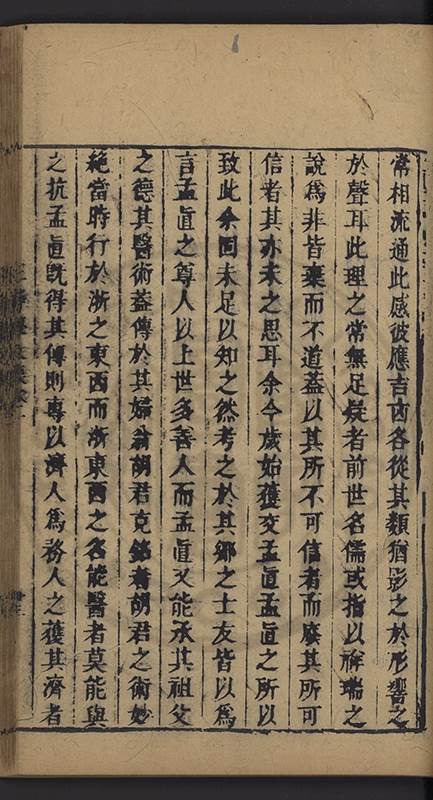 常相流通此感彼應吉凶各從其類猶影之於形響之
於聲耳此理之常無足疑者前世名儒或指以祥瑞之
說為非皆棄而不道蓋以其所不可信者而廢其所可
信者其亦未之思耳余今歲始獲交孟眞孟眞之所以
致此余固未足以知之然考之於其鄉之士友皆以為
言孟眞之尊人以上世多善人而孟眞又能承其祖父
之德其醫術蓋傳於其婦翁胡君克銘者胡君之術妙
絕當時行於浙之東西而浙東西之名能醫者莫能與
之抗孟眞既得其傳則專以濟人為務人之獲其濟者